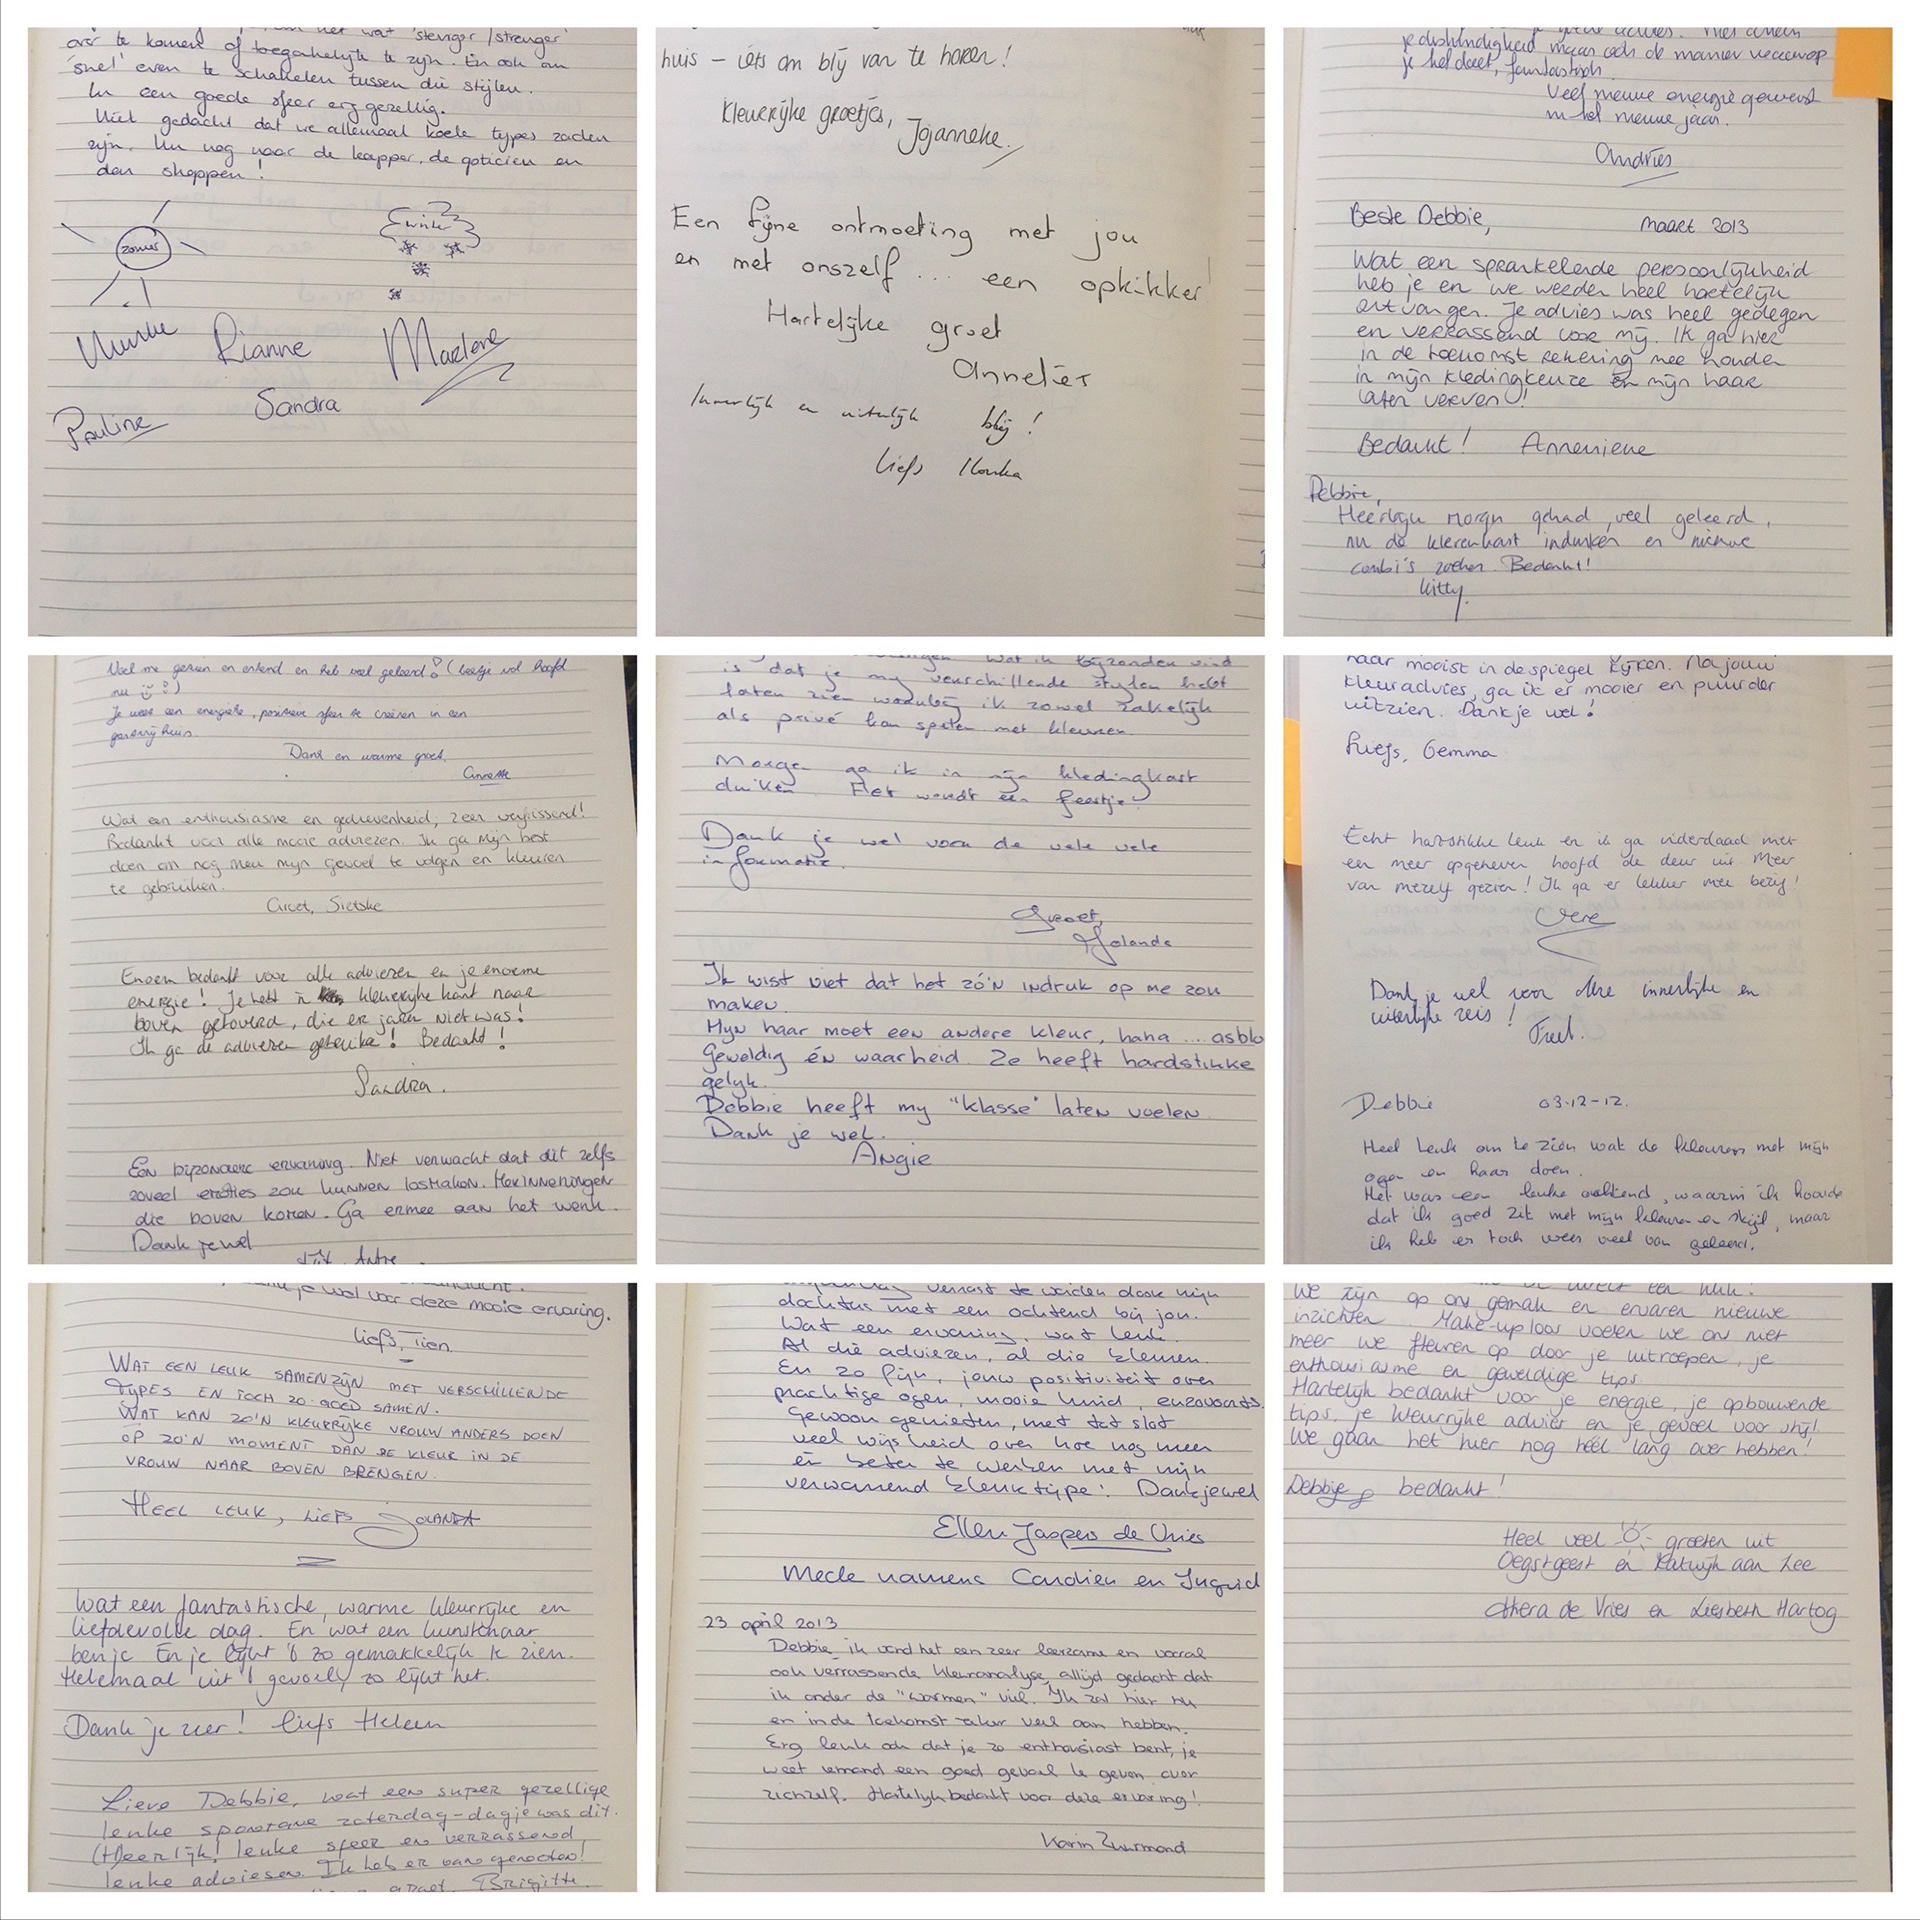 wat 'steviger/strenger'
over te komen of toegankelijk te zijn. En ook om
snel even te schakelen tussen die stijlen.
In een goede sfeer erg gezellig.
Niet gedacht dat we allemaal koele types zouden
zijn. Nu nog naar de kapper, de opticien en
dan shoppen!
zomer
winter
Rianne
Marlene
Sandra
Pauline
huis - iets om blij van te horen!
Kleurrijke groetjes,
Jojanneke.
Een fijne ontmoeting met jou
en met onszelf ... een opkikker!
Hartelijke groet
Annelies
Innerlijk en uiterlijk blij!
Liefs Ilonka
je deskundigheid maar ook de manier waarop
je het doet, fantastisch.
Veel nieuwe energie gewenst
in het nieuwe jaar.
Andries
Beste Debbie,
maart 2013
Wat een sprankelende persoonlijkheid
heb je en we werden heel hartelijk
ontvangen. Je advies was heel gedegen
en verrassend voor mij. Ik ga hier
in de toekomst rekening mee houden
in mijn kledingkeuze en mijn haar
laten verven!
Bedankt! Annemieke
Debbie,
Heerlijke morgen gehad, veel geleerd,
nu de klerenkast induiken en nieuwe
combi's zoeken. Bedankt!
Kitty.
Voel me gezien en erkend en heb veel geleerd! (beetje vol hoofd
nu)
Je weet een energieke, positieve sfeer te creëren in een
Dank en warme groet,
Annette
Wat een enthousiasme en gedrevenheid, zeer verfrissend!
Bedankt voor alle mooie adviezen. Ik ga mijn best
doen om nog meer mijn gevoel te volgen en kleuren
te gebruiken.
Groet, Sietske
Enorm bedankt voor alle adviezen en je enorme
energie! Je hebt 'n kleurrijke kant naar
boven getoverd, die er jaren niet was!
Ik ga de adviezen gebruiken! Bedankt!
Sandra.
Een bijzondere ervaring. Niet verwacht dat dit zelfs
zoveel emoties zou kunnen losmaken. Herinneringen
die boven komen. Ga ermee aan het werk.
Dank je wel
Wat ik bijzonder vind
is dat je mij verschillende stijlen hebt
laten zien waarbij ik zowel zakelijk
als privé kan spelen met kleuren.
Morgen ga ik in mijn kledingkast
duiken. Het wordt een feestje!
Dank je wel voor de vele vele
informatie.
Groet,
Jolanda
Ik wist niet dat het zó'n indruk op me zou
maken.
Mijn haar moet een andere kleur, haha .... asblo
Geweldig én waarheid. Ze heeft hardstikke
gelijk.
Debbie heeft mij "klasse" laten voelen
Dank je wel.
Angie
haar mooist in de spiegel kijken. Na jouw
kleuradvies, ga ik er mooier en puurder
uitzien. Dank je wel!
Liefs, Gemma
Echt hartstikke leuk en ik ga inderdaad met
een meer opgeheven hoofd de deur uit. Meer
van mezelf gezien! Ik ga er lekker mee bezig!
Dank je wel voor deze innerlijke en
uiterlijke reis!
Debbie 03-12-12.
Heel leuk om te zien wat de kleuren met mijn
ogen en haar doen.
Het was een leuke ochtend, waarin ik hoorde
dat ik goed zit met mijn kleuren en stijl, maar
ik heb er toch weer veel van geleerd.
je wel voor deze mooie ervaring.
Liefs, Tien
WAT EEN LEUK SAMENZIJN MET VERSCHILLENDE
TYPES EN TOCH ZO GOED SAMEN.
WAT KAN ZO'N KLEURRIJKE VROUW ANDERS DOEN
OP ZO'N MOMENT DAN DE KLEUR IN DE
VROUW NAAR BOVEN BRENGEN.
HEEL LEUK, LIEFS JOLANDA
Wat een fantastische, warme kleurrijke en
liefdevolle dag. En wat een kunstenaar
ben je. En je lijkt 't zo gemakkelijk te zien.
Helemaal uit 't gevoel, zo lijkt het.
Dank je zeer! liefs Heleen
Lieve Debbie, wat een super gezellige
leuke spontane zaterdag-dagje was dit.
(Heerlijk! leuke sfeer en verrassend
leuke adviezen. Ik heb er van genoten!
groet, Brigitte.
verrast te worden door mijn
dochters met een ochtend bij jou.
Wat een ervaring, wat leuk.
Al die adviezen, al die kleuren.
En zo fijn, jouw positiviteit over
prachtige ogen, mooie huid, enzovoorts.
Gewoon genieten, met tot slot
veel wijsheid over hoe nog meer
en beter te werken met mijn
verwarrend kleurtype! Dankjewel
Ellen Jaspers de Vries
Mede namens Carolien en Ingrid
23 april 2013
Debbie, ik vond het een zeer leerzame en vooral
ook verrassende kleuranalyse, altijd gedacht dat
ik onder de "warmen" viel. Ik zal hier nu
en in de toekomst zeker veel aan hebben.
Erg leuk ook dat je zo enthousiast bent, je
weet iemand een goed gevoel te geven over
zichzelf. Hartelijk bedankt voor deze ervaring!
Karin Zuurmond
We zijn op ons gemak en ervaren nieuwe
inzichten. Make-uploos voelen we ons niet
meer we fleuren op door je uitroepen, je
enthousiasme en geweldige tips.
Hartelijk bedankt voor je energie, je opbouwende
tips, je kleurrijke advies en je gevoel voor stijl!
We gaan het hier nog héél lang over hebben!
Debbie, bedankt!
Heel veel groeten uit
Oegstgeest en Katwijk aan Zee
Thera de Vries en Liesbeth Hartog